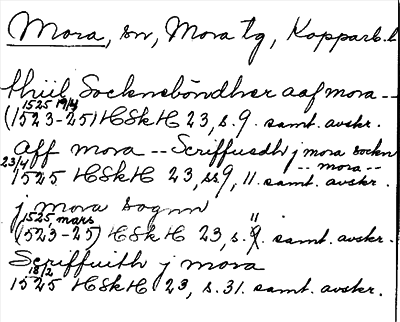 Mora, sn, Mora tg, Kopparb. l
thiil Sockneböndher aaf mora --
1525 19/4
(1523-25) HSkH 23, s. 9. samt. avskr.
Aff mora -- Scriffuadh j mora sockn
-- mora --
23/4
1525 HSkH 23, ss 9, 11. samt. avskr.
j mora sognn
1525 mars
11
(1523-25) HSkH 23, s. 9. samt. avskr.
Scriffuith j mora
18/2
1525 HSkH 23, s. 31. samt. avskr.